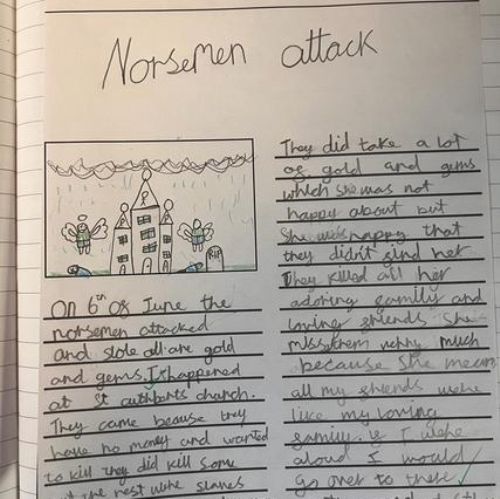 Norsemen attack
RIP
On 6th of June the
norsemen attacked
and stole all are gold
and gems. It happened
at St cuthbarts church.
They came beause they
have no money and wanted
to kill they did kill some
the rest were slaves
They did take a lot
of gold and gems
which she was not
happy about but
She was happy that
they didn't find her
They killed all her
adoring family and
loving friends She
miss them very much
because She mean
all my friends were
like my loving
family. if I were
aloud I would
go over to there